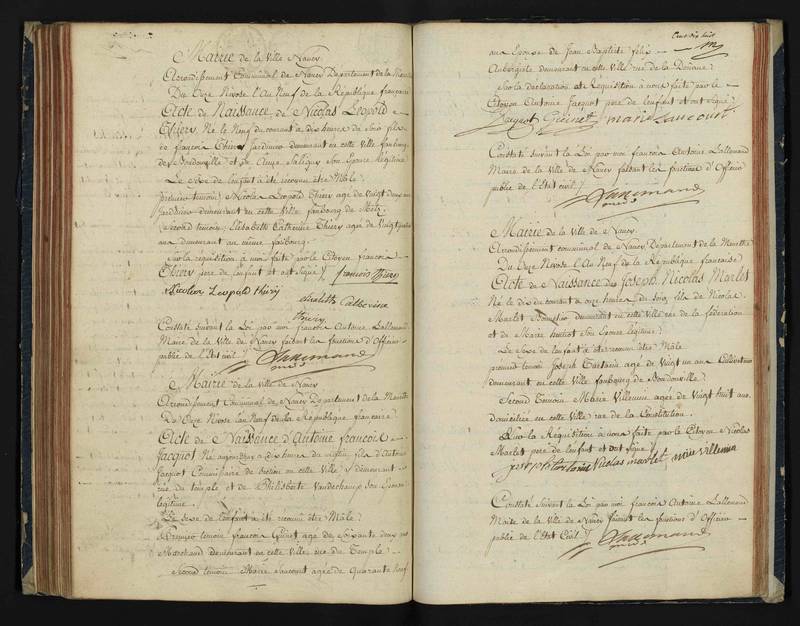 Mairie de la Ville Nancy
Arrondissement Communal de Nancy Département de la
Du Onze Nivose l'An Neuf de la République française
Acte de Naissance de Nicolas Léopold
Thiery, Né le Neuf du courant à dix heures du soir fils
de françois Thiery Jardinier demeurant en cette Ville faubourg
de Boudonville et de Anne son Epouse légitime
Le Sexe de l'enfant a été reconnu être Male.
premier temoin Nicolas Leopold Thiery agé de Vingt deux ans
Jardinier demeurant en cette Ville faubourg de Metz
Second temoin, Elisabeth Catherine Thiery agée de Vingt
ans demeurant au même faubourg.
Sur la requisition à nous faite par le Citoyen françois
Thiery pere de l'enfant et ont signé françois Thiery
Nicolas Leopold thiery
Elisabeth Catherine
thiery
Constaté Suivant la Loi par moi françois Antoine Lallemand
Maire de la Ville de Nancy faisant les fonctions d'Officier
public de l'Etat civil
Lallemand
Mairie de la Ville de Nancy
Arrondissement Communal de Nancy Département de la Meurthe
Du Onze Nivose l'an Neuf de la République française
Acte de Naissance d'Antoine françois
Jacquot Né aujourd'hui à dix heures du matin, fils d'Antoine
Jacquot Commissaire de Section en cette Ville y demeurant
rue du temple et de Philisberte Vandechamp son Epouse
légitime.
Le Sexe de l'enfant a été reconnu être Mâle.
Premier temoin françois agé de Soixante deux ans
Marchand demeurant en cette Ville rue du Temple
Second temoin Marie Saucourt agée de Quarante Neuf
Cent dix huit
ans Epouse de Jean Baptiste félix
Aubergiste demeurant en cette Ville rue de la Douane
Sur la déclaration et Requisition à nous faite par le
Citoyen Antoine Jacquot pere de l'enfant et ont signé
Jacquot marie Saucourt
Constaté Suivant la Loi par moi françois Antoine Lallemand
Maire de la Ville de Nancy faisant les fonctions d'Officier
public de l'Etat civil
Lallemand
Mairie de la Ville de Nancy.
Arrondissement communal de Nancy Département de la Meurthe
Du Onze Nivose l'An Neuf de la République française
Acte de Naissance de Joseph Nicolas Marlet
Né le dix du courant à onze heures du soir, fils de Nicolas
Marlet demeurant en cette Ville rue de la fédération
et de Marie son Epouse légitime.
Le Sexe de l'enfant a été reconnu être Mâle
premier temoin Joseph agé de Vingt un ans Cultivateur
demeurant en cette Ville faubourg de Boudonville.
Second Temoin Marie Villemin agée de Vingt huit ans.
domiciliée en cette Ville rue de la Constitution.
Sur la Requisition à nous faite par le Citoyen Nicolas
Marlet pere de l'enfant et ont signé
Nicolas marlet marie villemin
Constaté Suivant la Loi par moi françois Antoine Lallemand
Maire de la Ville de Nancy faisant les fonctions d'Officier
public de l'Etat Civil
Lallemand